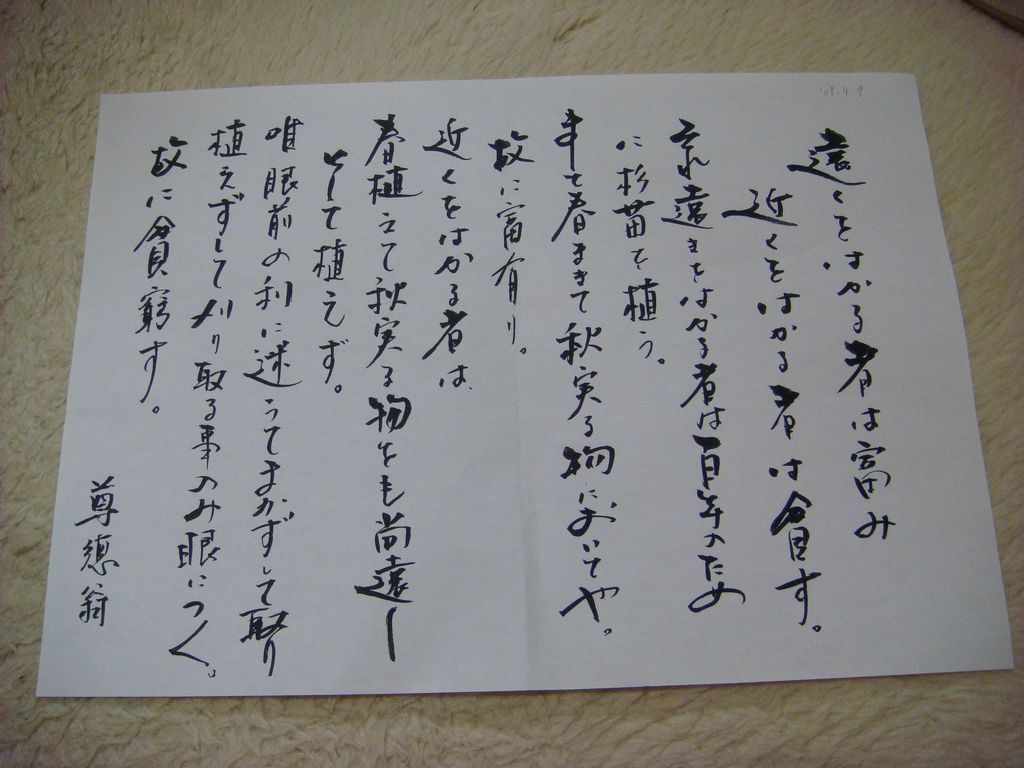 '09.4.9
遠くをはかる者は富み
近くをはかる者は貧す。
それ遠きをはかる者は百年のため
に杉苗を植う。
まして春まきて秋実る物においてや。
故に富有り。
近くをはかる者は
春植えて秋実る物をも尚遠し
として植えず。
唯眼前の利に迷うてまかずして取り
植えずして刈り取る事のみ眼につく。
故に貧窮す。
尊徳翁